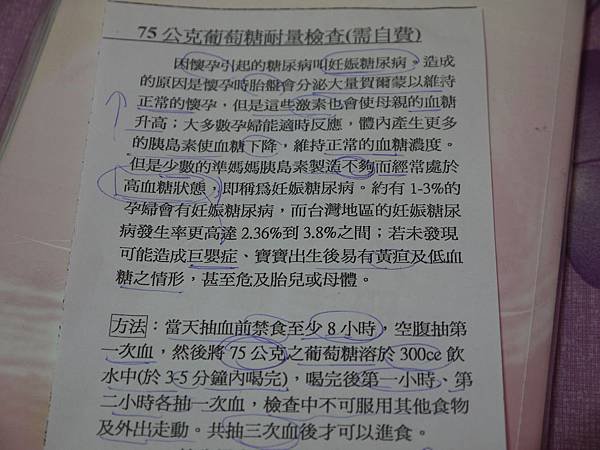 75公克葡萄糖耐量檢查(需自費)
因懷孕引起的糖尿病叫妊娠糖尿病。造成
的原因是懷孕時胎盤會分泌大量賀爾蒙以維持
正常的懷孕，但是這些激素也會使母親的血糖
升高；大多數孕婦能適時反應，體內產生更多
的胰島素使血糖下降，維持正常的血糖濃度。
但是少數的準媽媽胰島素製造不夠而經常處於
高血糖狀態，即稱爲妊娠糖尿病。約有1-3%的
孕婦會有妊娠糖尿病，而台灣地區的妊娠糖尿
病發生率更高達2.36%到3.8%之間；若未發現
可能造成巨嬰症、寶寶出生後易有黃疸及低血
糖之情形，甚至危及胎兒或母體。
方法：當天抽血前禁食至少8小時，空腹抽第
一次血，然後將75公克之葡萄糖溶於300cc飲
水中(於3-5分鐘內喝完)，喝完後第一小時、第
二小時各抽一次血，檢查中不可服用其他食物
及外出走動。共抽三次血後才可以進食。